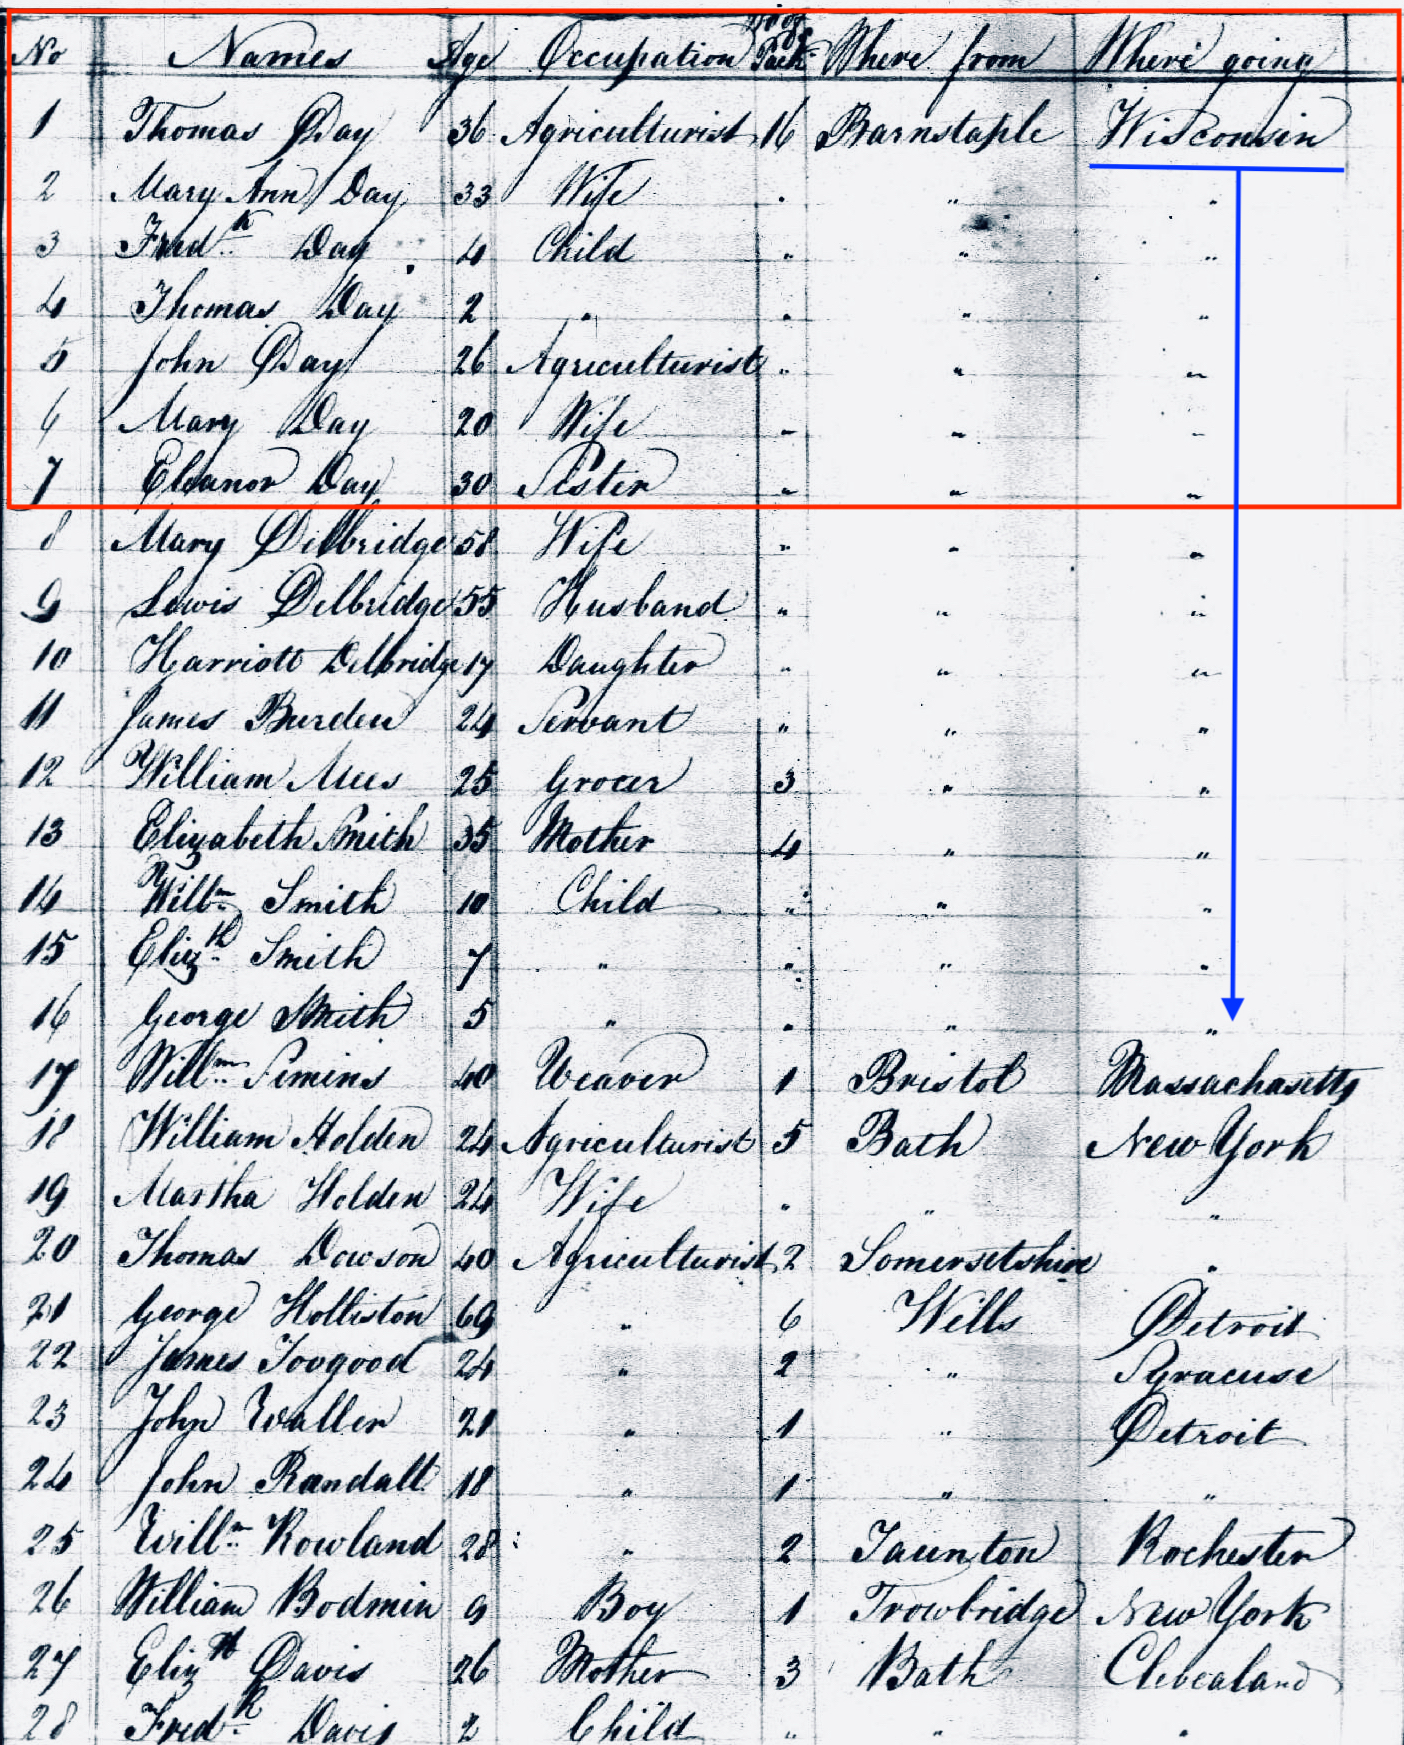 No Names Age Occupation Pack Where from Where going
1 Thomas Day 36 Agriculturist 16 Barnstaple Wisconsin
2 Mary Ann Day 33 Wife " " "
3 Fredk Day 4 Child " " "
4 Thomas Day 2 " " " "
5 John Day 26 Agriculturist " " "
6 Mary Day 20 Wife " " "
7 Eleanor Day 30 Sister " " "
8 Mary Delbridge 58 Wife " " "
9 Lewis Delbridge 55 Husband " " "
10 Harriott Delbridge 17 Daughter " " "
11 James Burden 24 Servant " " "
12 William 25 Grocer 3 " "
13 Elizabeth Smith 35 Mother 4 " "
14 Willm Smith 10 Child " " "
15 Elizth Smith 7 " " " "
16 George Smith 5 " " " "
17 Willm Simins 40 Weaver 1 Bristol Massachasetts
18 William Holden 24 Agriculturist 5 Bath New York
19 Martha Holden 24 Wife " " "
20 Thomas Dowson 40 Agriculturist 2 Somersetshire "
21 George Holliston 69 " 6 Wells Detroit
22 James Toogood 24 " 2 " Syracuse
23 John Waller 21 " 1 " Detroit
24 John Randall 18 " 1 " "
25 Willm Rowland 28 " 2 Taunton Rochester
26 William Bodmin 9 Boy 1 Trowbridge New York
27 Elizth Davis 26 Mother 3 Bath Clevealand
28 Fredk Davis 2 Child " " "